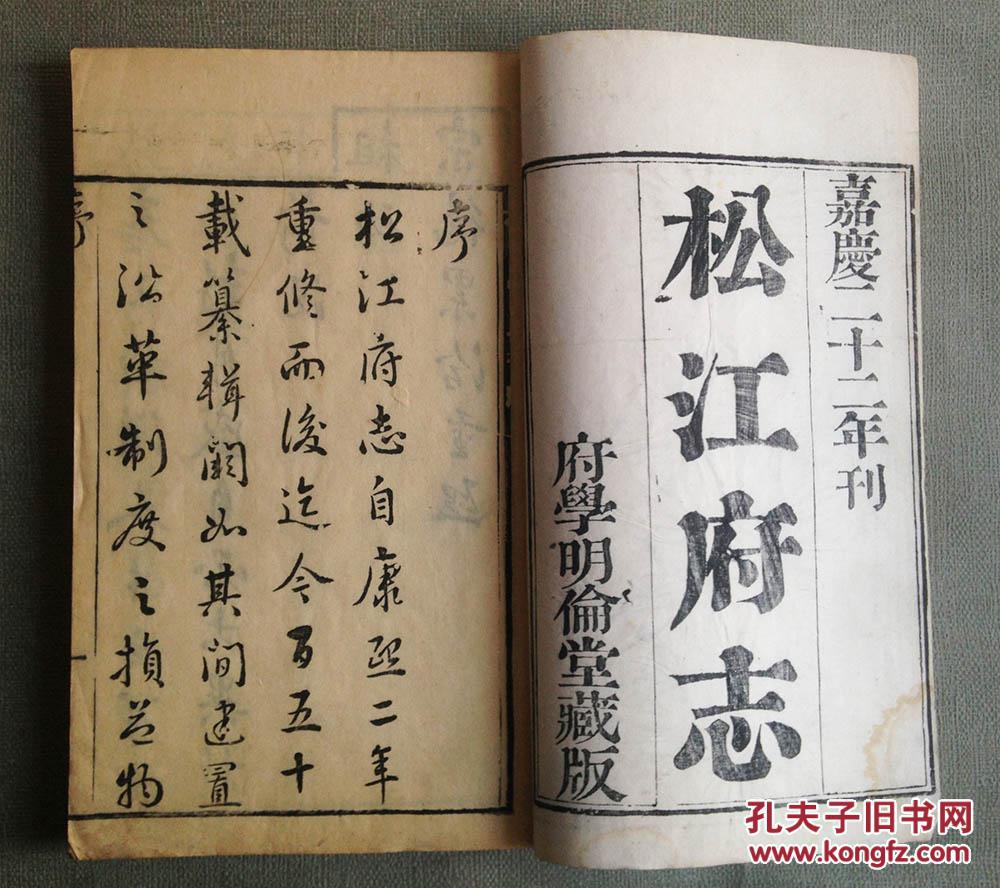 嘉慶二十二年刊
松江府志
府學明倫堂藏版
序
松江府志自康熙二年
重修而後迄今百五十
載纂輯闕如其間建置
之沿革制度之損益物
序
孔夫子旧书网
www.kongfz.com